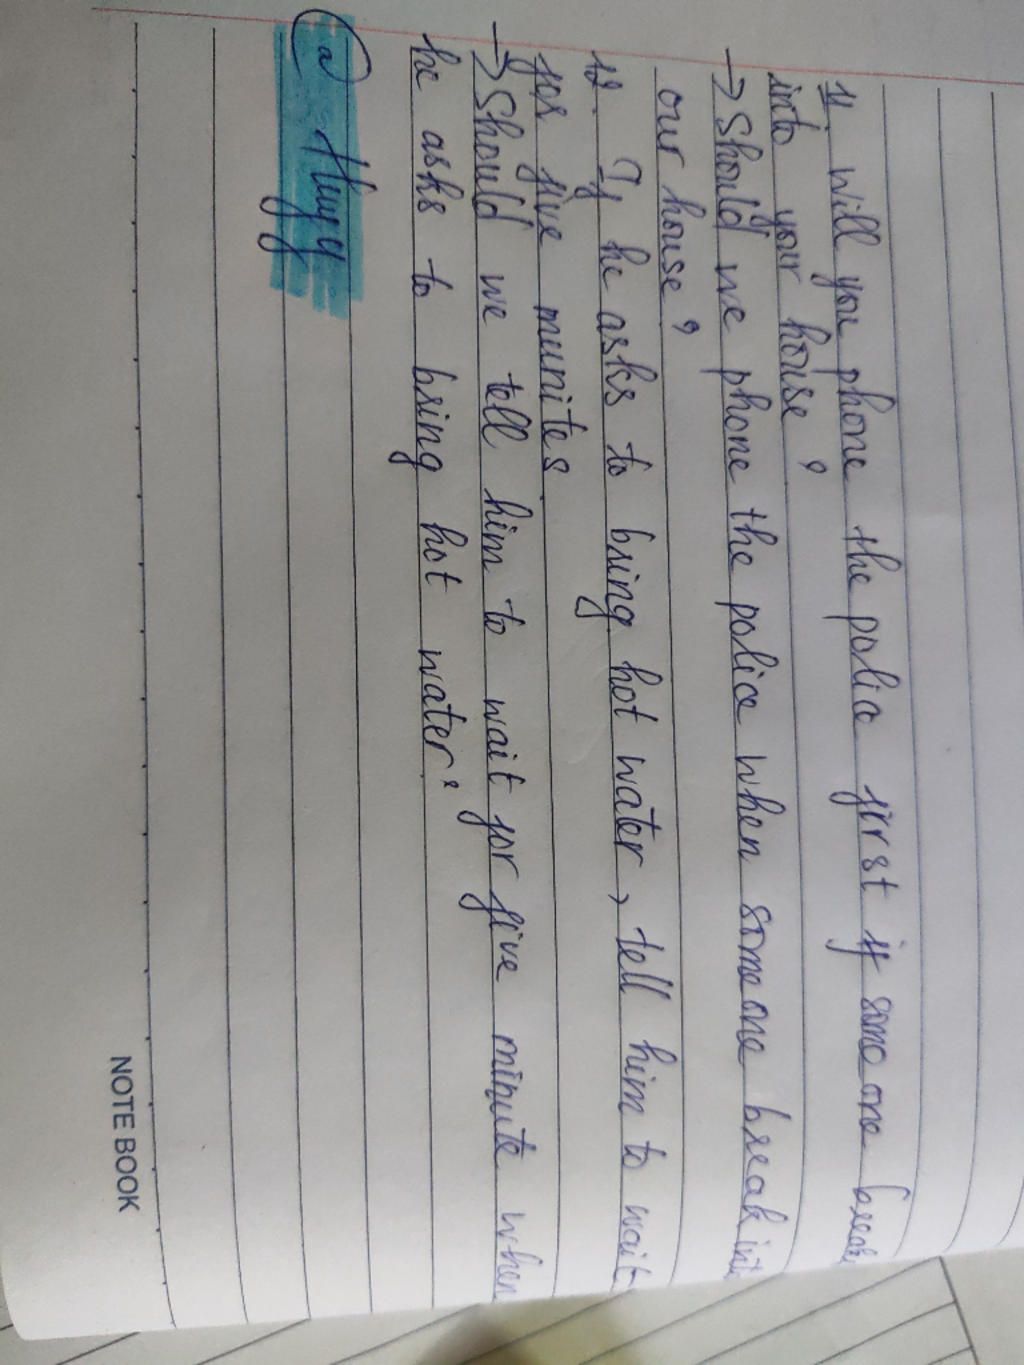 11. will you phone the police first if someone break
into your house?
→ Should we phone the police when someone break into
our house?
12. If he asks to bring hot water, tell him to wait
for five munites.
→ Should we tell him to wait for five minute when
he asks to bring hot water?
a
NOTE BOOK